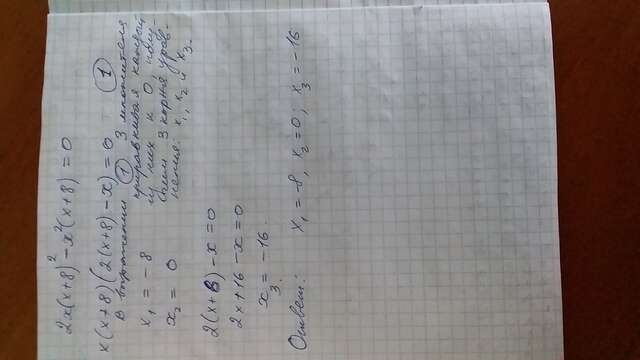 2x(x+8)² - x²(x+8) = 0
x(x+8)(2(x+8)-x) = 0 ①
В выражении ① 3 множителя
приравнивая каждый
из них к 0, полу-
чим 3 корня урав-
нения: x₁, x₂ и x₃.
x₁ = -8
x₂ = 0
2(x+8) - x = 0
2x+16 - x = 0
x₃ = -16.
Ответ: x₁ = -8, x₂ = 0; x₃ = -16